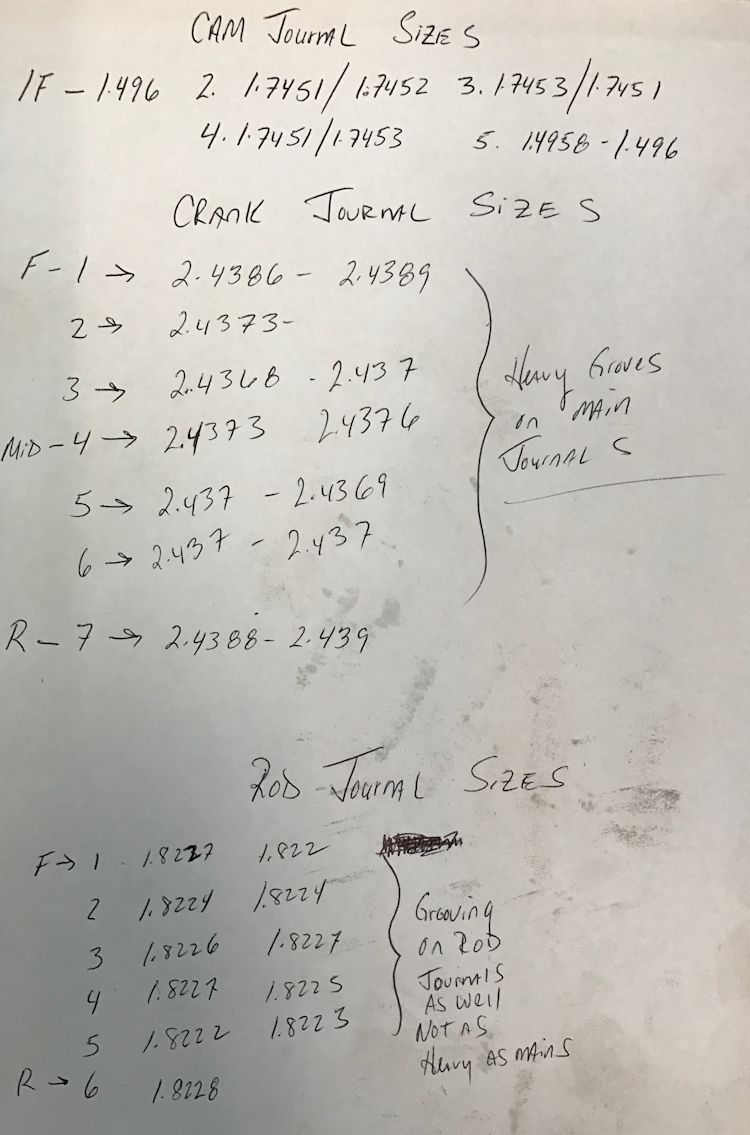 CAM JOURNAL SIZES
1F - 1.496 2. 1.7451/1.7452 3. 1.7453/1.7451
4. 1.7451/1.7453 5. 1.4958 - 1.496
CRANK JOURNAL SIZES
F - 1 → 2.4386 - 2.4389
2 → 2.4373-
3 → 2.4368 - 2.437
Heavy Groves
on MAIN
JOURNALS
MiD - 4 → 2.4373 2.4376
5 → 2.437 - 2.4369
6 → 2.437 - 2.437
R - 7 → 2.4388 - 2.439
ROD JOURNAL SIZES
F → 1 1.8227 1.822
2 1.8224 1.8224
3 1.8226 1.8227
4 1.8227 1.8225
5 1.8222 1.8223
R → 6 1.8228
Grooving
on ROD
JOURNALS
AS Well
NOT AS
Heavy AS MAINS